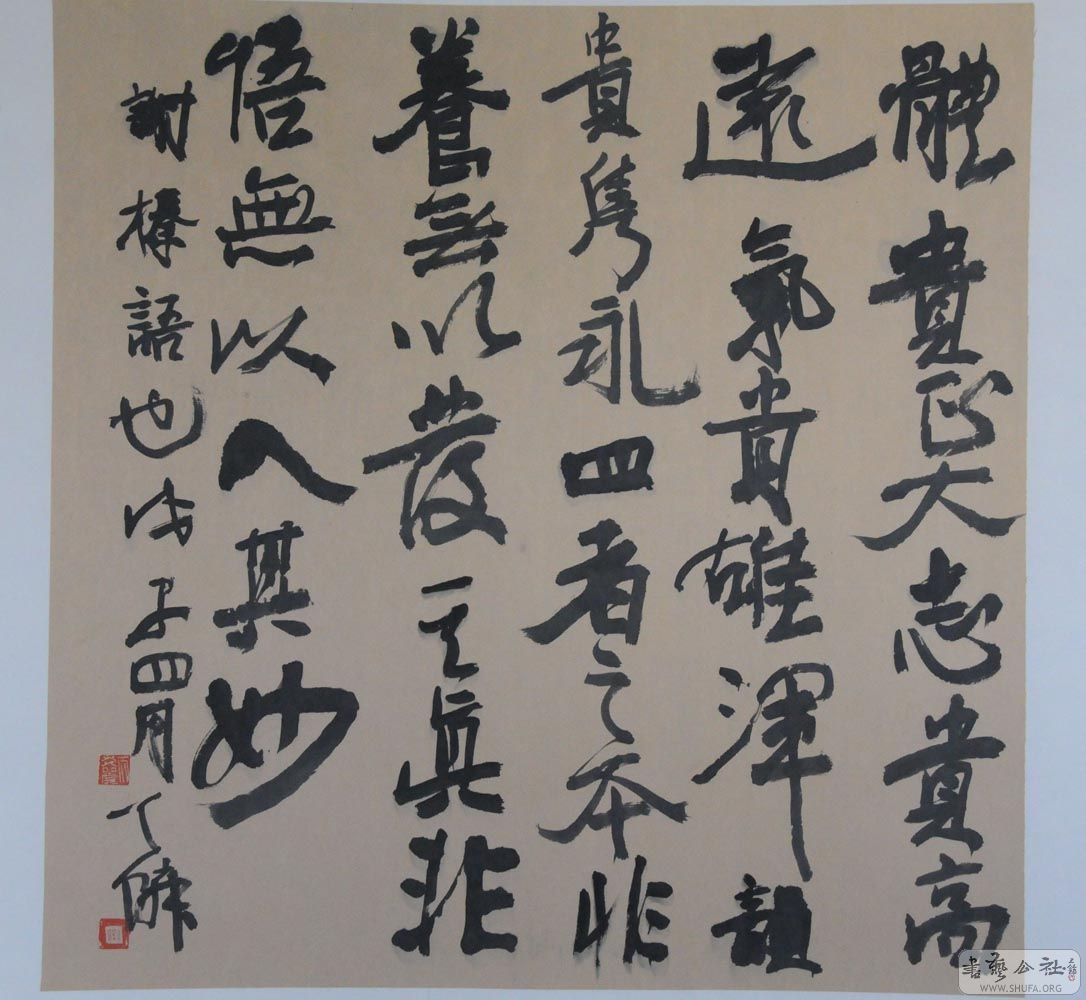 體貴正大志貴高
遠氣貴雄渾韻
貴雋永四者之本非
養無以發其真非
悟無以入其妙
謝榛語也戊子四月
書藝公社
WWW.SHUFA.ORG